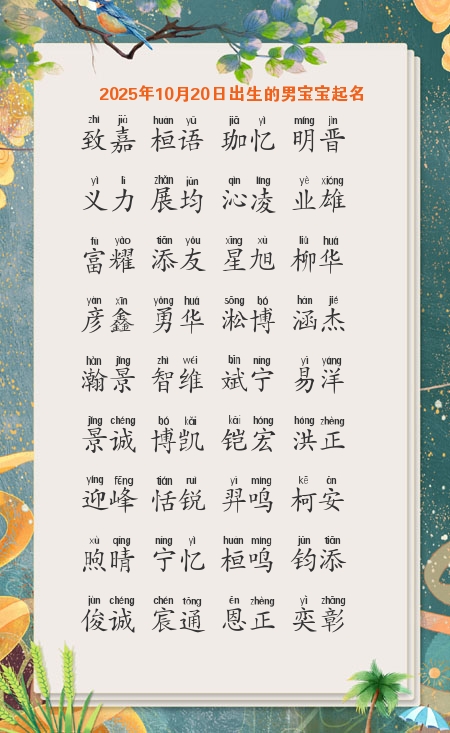 2025年10月20日出生的男宝宝起名
zhì jiā huán yǔ jiā yì míng jìn
致嘉 桓语 珈忆 明晋
yì lì zhǎn jūn qìn líng yè xióng
义力 展均 沁凌 业雄
fù yào tiān yǒu xīng xù liǔ huá
富耀 添友 星旭 柳华
yàn xīn yǒng huá sōng bó hán jié
彦鑫 勇华 淞博 涵杰
hàn jǐng zhì wéi bīn níng yì yáng
瀚景 智维 斌宁 易洋
jǐng chéng bó kǎi kǎi hóng hóng zhèng
景诚 博凯 铠宏 洪正
yíng fēng tián ruì yì míng kē ān
迎峰 恬锐 羿鸣 柯安
xù qíng níng yì huán míng jūn tiān
煦晴 宁忆 桓鸣 钧添
jùn chéng chén tōng ēn zhèng yì zhāng
俊诚 宸通 恩正 奕彰